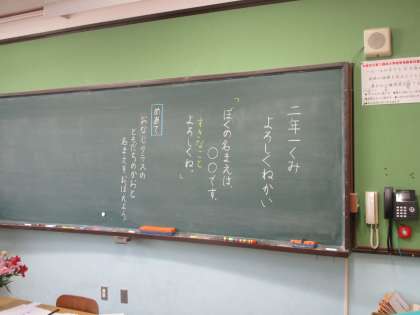 二年一くみ
よろしくねかい
「ぼくの名まえは、
○○です。
すきなこと
よろしくね。」
めあて
おなじクラスの
ともだちのかおと
名まえをおぼえよう。